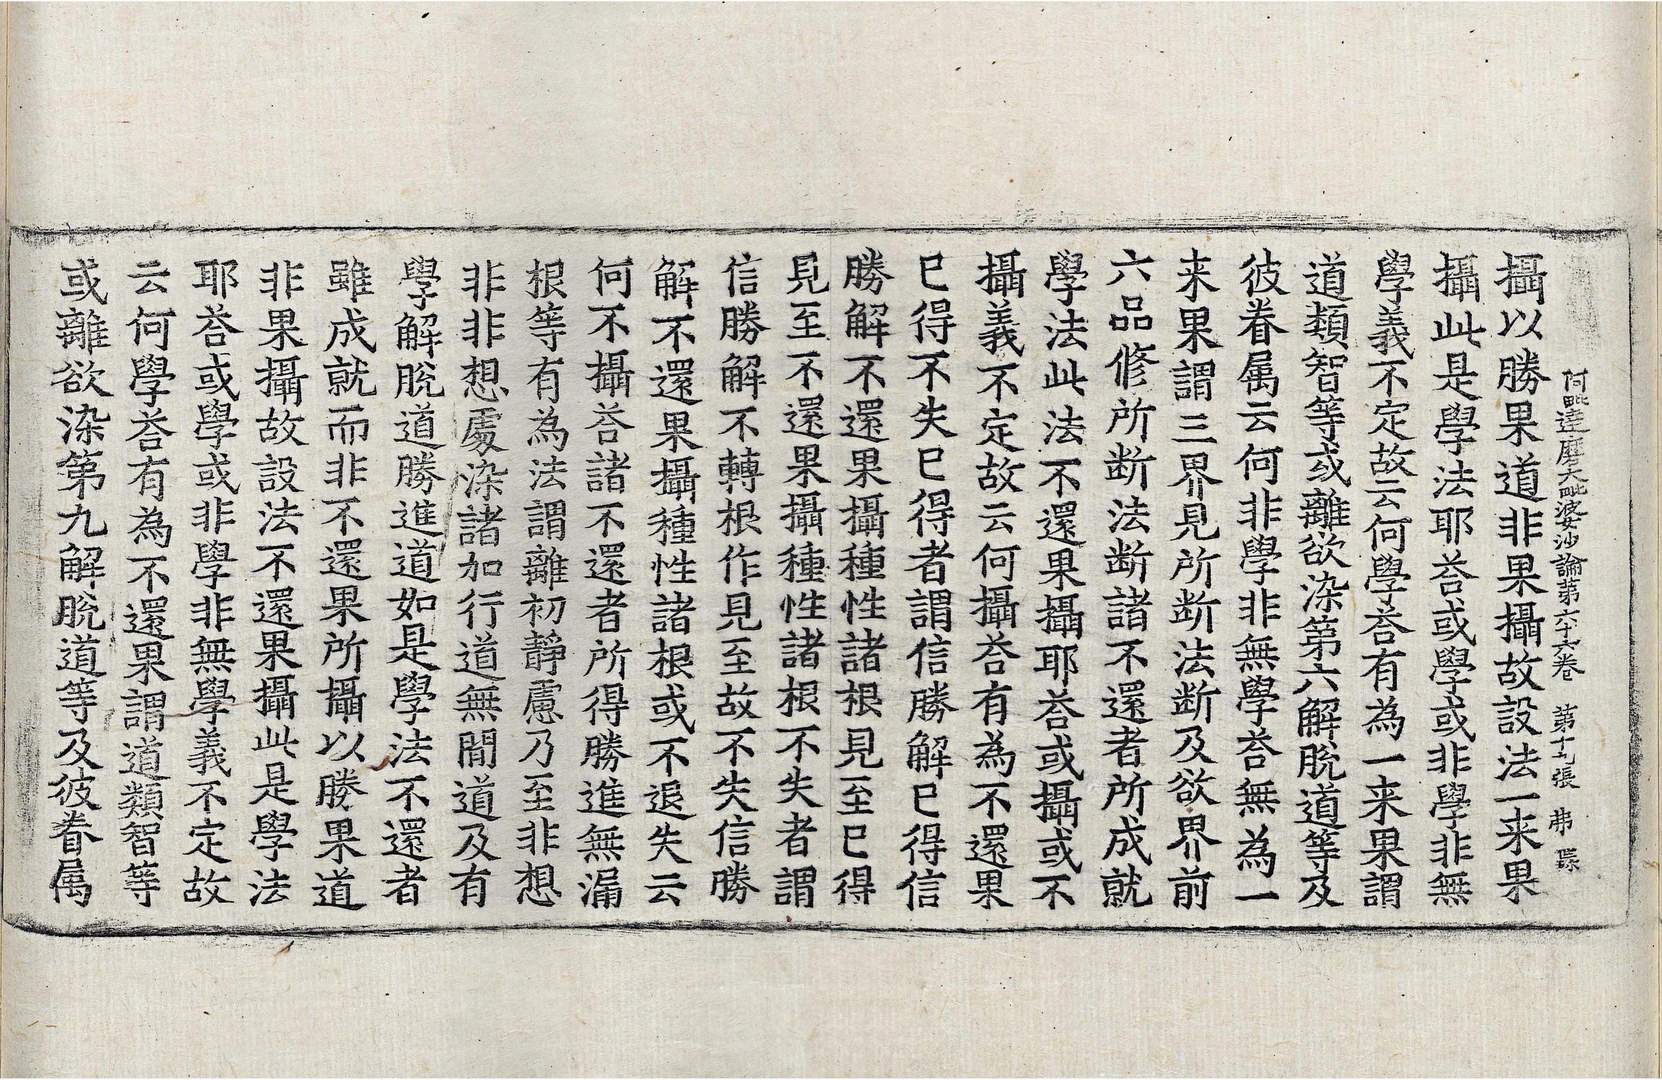 阿毗達磨大毗婆沙論苐六十六卷 第十九張 弗
攝以勝果道非果攝故設法一来果
攝此是學法耶荅或學或非學非無
學義不定故云何學荅有為一来果謂
道類智等或離欲染第六解脫道等及
彼眷属云何非學非無學荅無為一
来果謂三界見所断法断及欲界前
六品修所断法断諸不還者所成就
學法此法不還果攝耶荅或攝或不
攝義不定故云何攝荅有為不還果
已得不失已得者謂信勝解已得信
勝解不還果攝種性諸根見至已得
見至不還果攝種性諸根不失者謂
信勝解不轉根作見至故不失信勝
解不還果攝種性諸根或不退失云
何不攝荅諸不還者所得勝進無漏
根等有為法謂離初靜慮乃至非想
非非想處染諸加行道無間道及有
學解脫道勝進道如是學法不還者
雖成就而非不還果所攝以勝果道
非果攝故設法不還果攝此是學法
耶荅或學或非學非無學義不定故
云何學荅有為不還果謂道類智等
或離欲染第九解脫道等及彼眷属